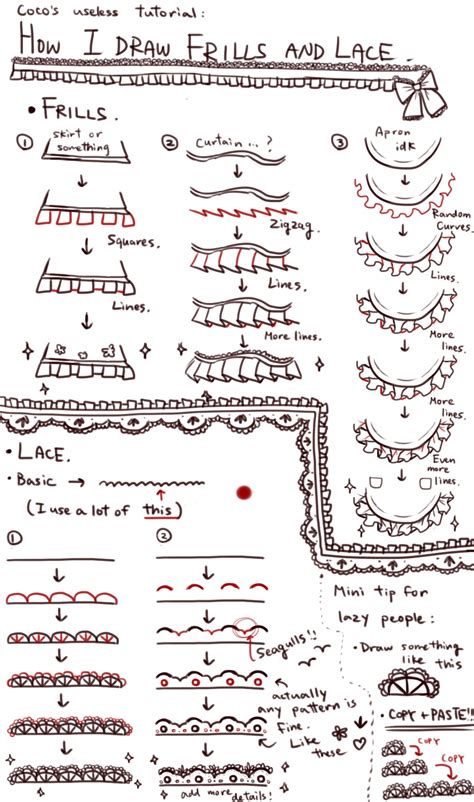 Coco's useless tutorial:
How I DRAW FRILLS AND LACE.
• FRILLS.
①
skirt or
something
Squares.
Lines.
②
Curtain...?
Zigzag.
Lines.
More lines.
③
Apron
idk
Random
Curves.
Lines.
More
lines.
More
lines.
Even
more
lines.
• LACE.
• Basic →
(I use a lot of this)
①
②
Seagulls!!
actually
any pattern is
Fine.
Like
these
add more details!
Mini tip for
lazy people:
• Draw something
like this
• COPY + PASTE!!
COPY
COPY